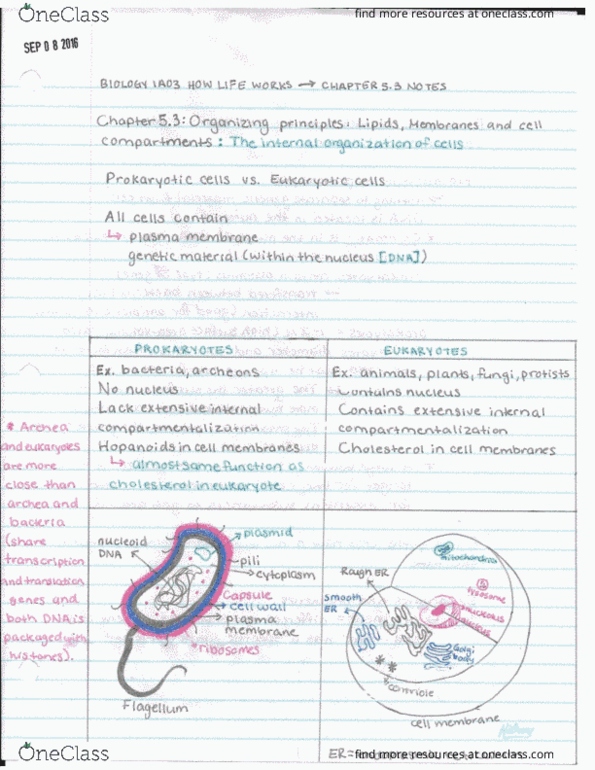 OneClass
find more resources at oneclass.com
SEP 08 2016
BIOLOGY 1A03 HOW LIFE WORKS → CHAPTER 5.3 NOTES
Chapter 5.3: Organizing principles: Lipids, Membranes and cell
compartments: The internal organization of cells
Prokaryotic cells vs. Eukaryotic cells
All cells contain
↳ plasma membrane
genetic material (within the nucleus [DNA])
PROKARYOTES
Ex. bacteria, archeons
No nucleus
Lack extensive internal
compartmentalization
Hopanoids in cell membranes
↳ almost same function as
cholesterol in eukaryote
EUKARYOTES
Ex. animals, plants, fungi, protists
Contains nucleus
Contains extensive internal
compartmentalization
Cholesterol in cell membranes
* Archea
and eukaryotes
are more
close than
archea and
bacteria
(share
transcription
and translation
genes and
both DNA is
packaged with
histones).
nucleoid
DNA
plasmid
pili
cytoplasm
Capsule
cell wall
plasma
membrane
ribosomes
Flagellum
mitochondria
Rough ER
lysosome
smooth
ER
nucleolus
nucleus
Golgi
body
centriole
cell membrane
ER=
OneClass
find more resources at oneclass.com